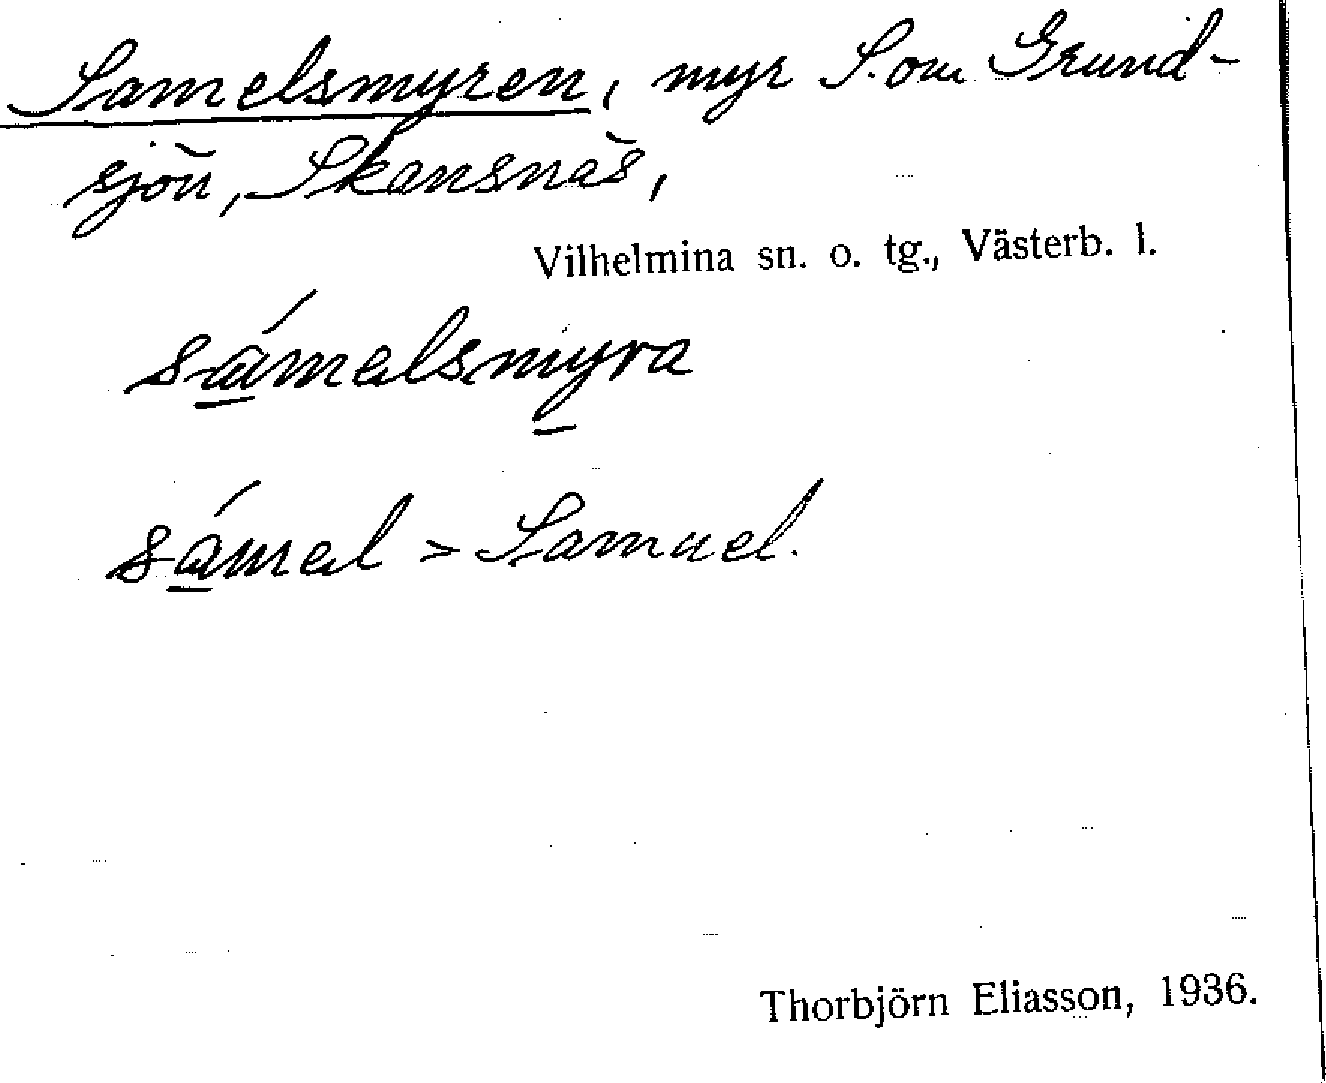 Samelsmyren, myr S. om Grund-
sjön, Skansnäs,
Vilhelmina sn. o. tg., Västerb. l.
sámelsmyra
sámel > Samuel.
Thorbjörn Eliasson, 1936.